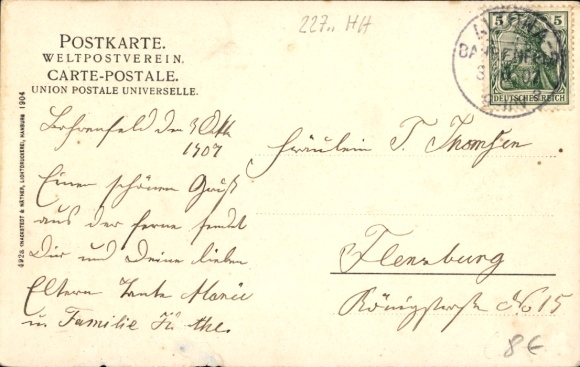 227.. HH
POSTKARTE.
WELTPOSTVEREIN.
CARTE-POSTALE.
UNION POSTALE UNIVERSELLE.
5 5
ALTONA
BAHRENFELD
DEUTSCHES REICH
4928 KNACKSTEDT & NÄTHER, LICHTDRUCKEREI, HAMBURG 1904
Bahrenfeld den 3 Okt
1907
Einen schönen Gruß
aus der ferne sendet
Dir und Deine lieben
Eltern Tante Marie
u. Familie
Fräulein T. Thomsen
Flensburg
Königstraße No 15
8€